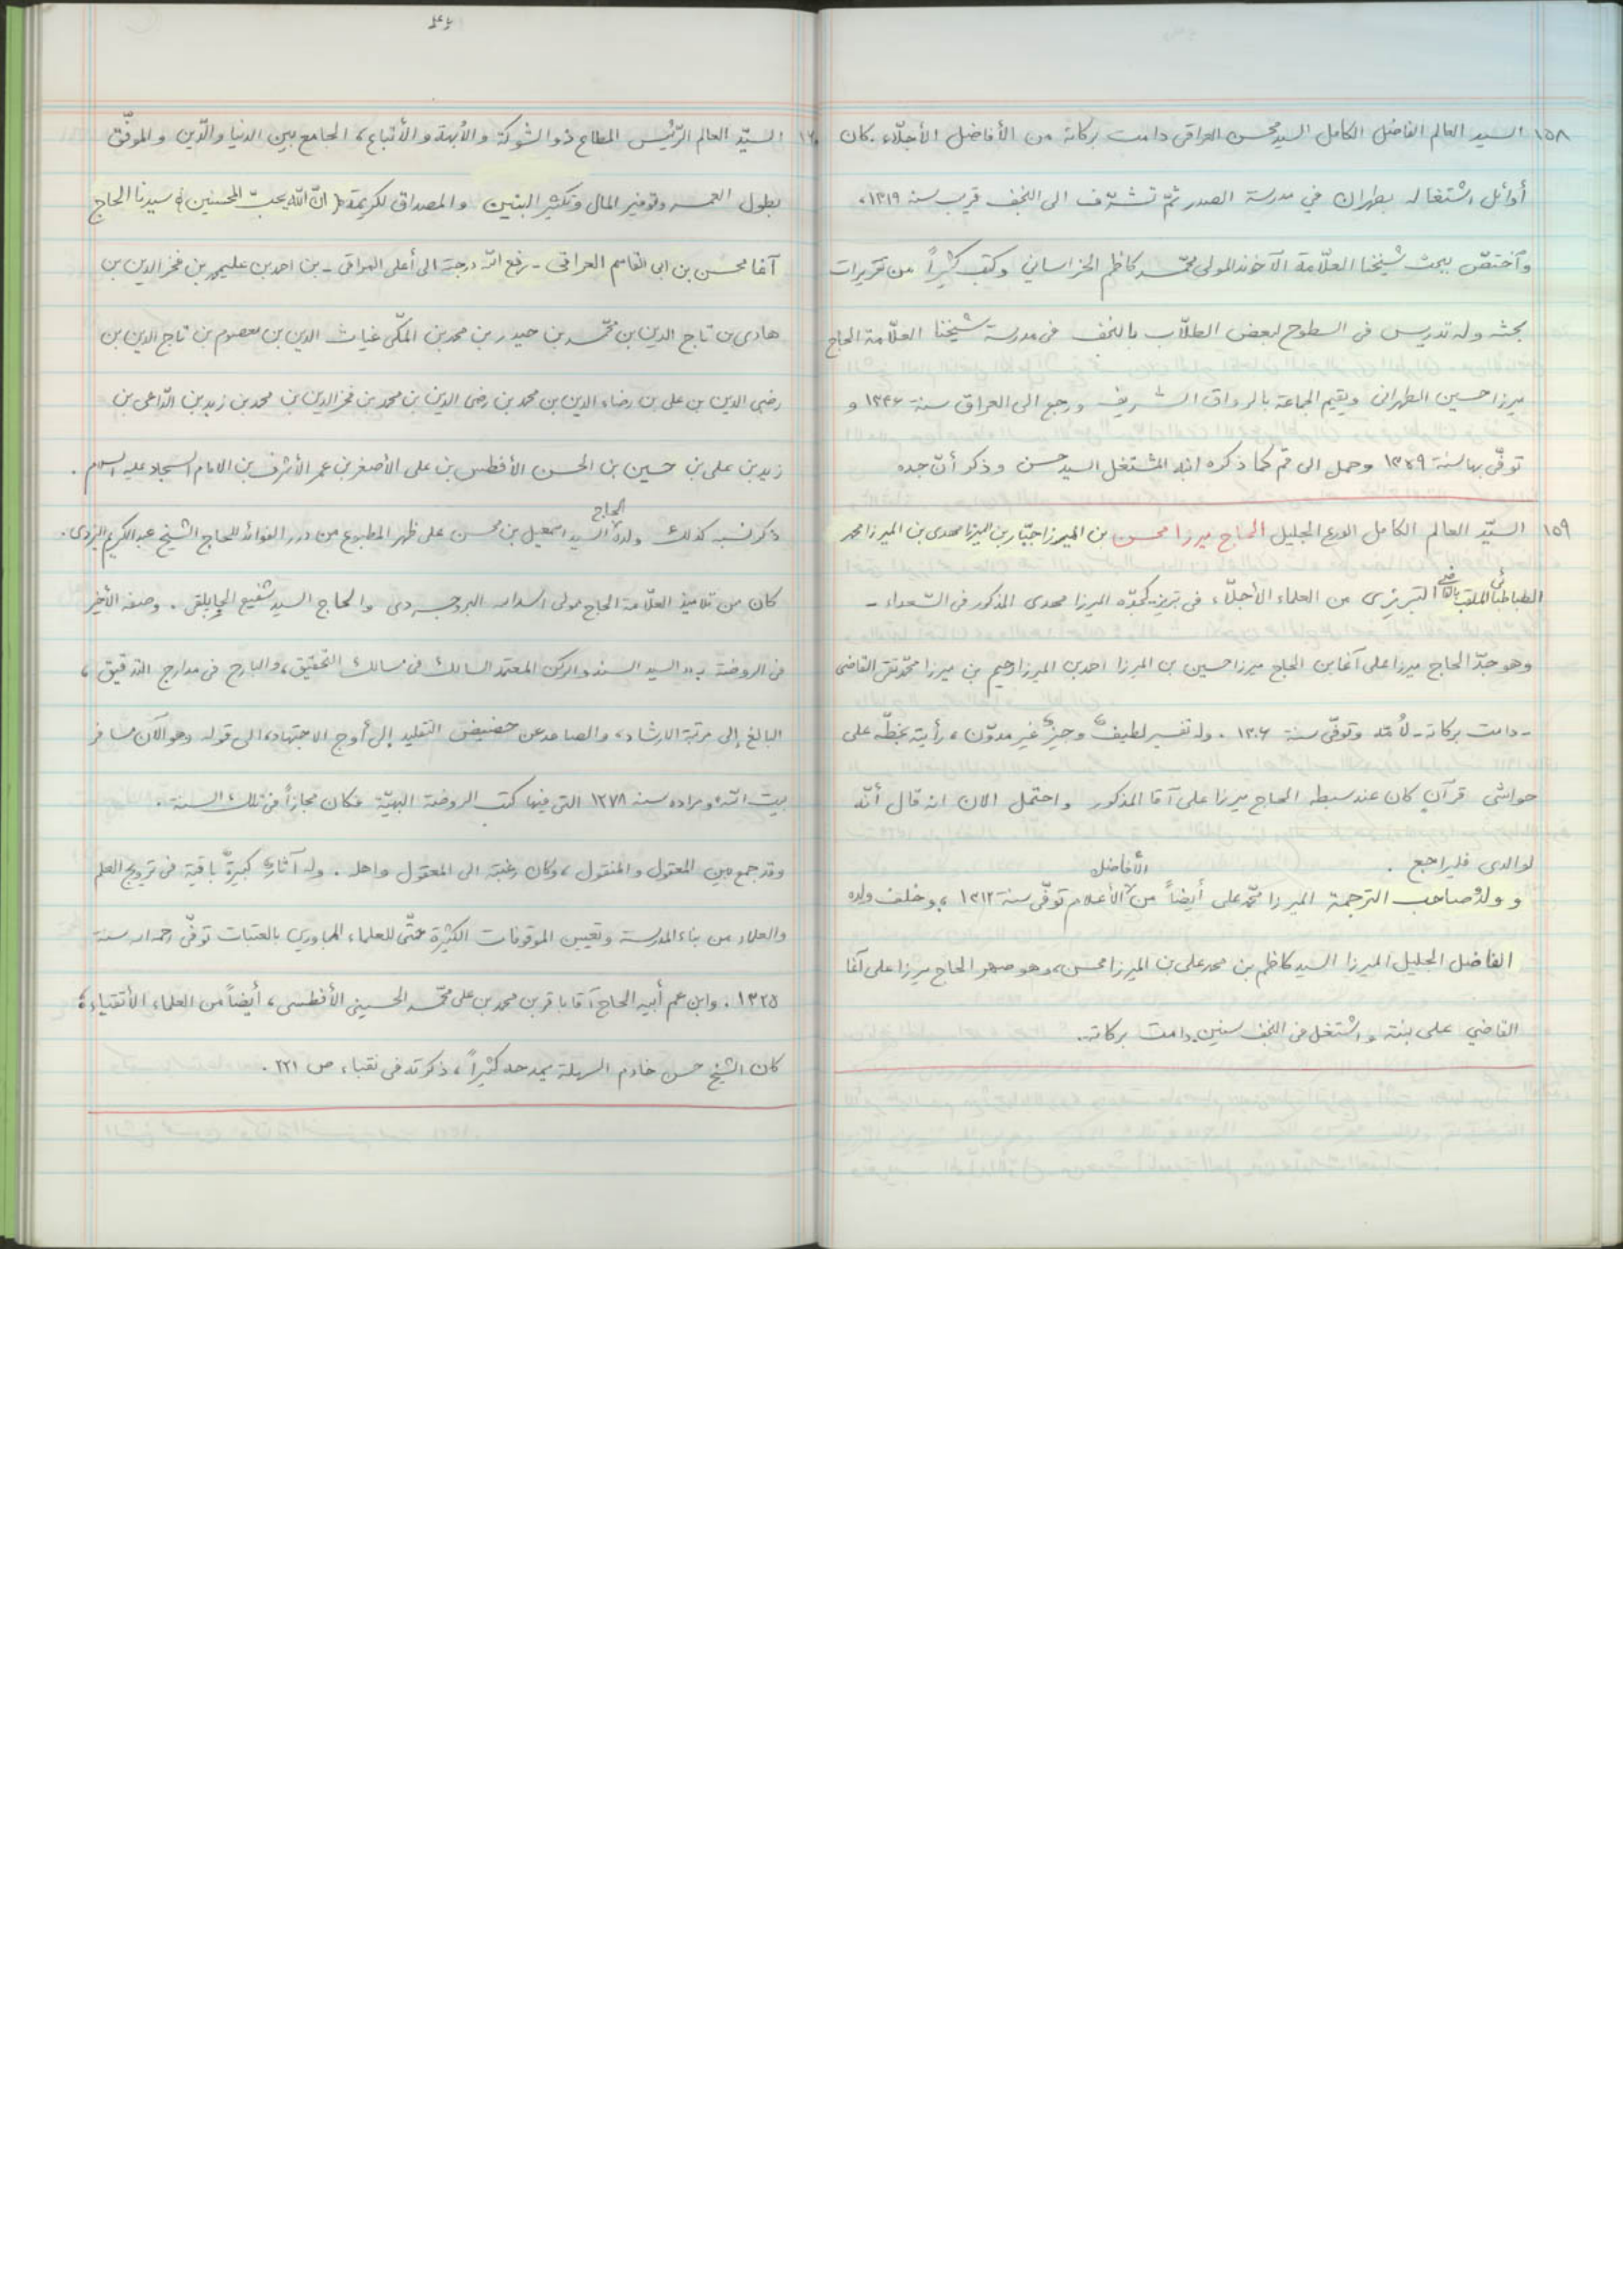 ١٥٨ السيد العالم الفاضل الكامل السيد محسن العراقي دامت بركاته من الأفاضل الأجلّاء. كان
أوائل اشتغاله بطهران في مدرسة الصدر ثمّ تشرّف الى النجف قرب سنة ١٣١٩،
وآختصّ ببحث شيخنا العلّامة الآخوند المولى محمّد كاظم الخراساني وكتب كثيراً من تقريرات
بحثه وله تدريس في السطوح لبعض الطلّاب بالنجف في مدرسة شيخنا العلّامة الحاج
ميرزا حسين الطهراني ويقيم الجماعة بالرواق الشريف ورجع الى العراق سنة ١٣٣٦ و
توفّي بها سنة ١٣٤٩ وحمل الى قم كما ذكره ابنه المشتغل السيد حسن وذكر أنّ جده
١٥٩ السيّد العالم الكامل الورع الجليل الحاج ميرزا محسن بن الميرزا جبّار بن الميرزا مهدي بن الميرزا محمد
الطباطبائي الملقب بالقاضي التبريزي من العلماء الأجلّاء في تبريز كجدّه الميرزا مهدي المذكور في السّعداء -
وهو جدّ الحاج ميرزا علي آغا بن الحاج ميرزا حسين بن الميرزا احمد بن الميرزا رحيم بن ميرزا محمّد تقي القاضي
- دامت بركاته - لأمّه وتوفّي سنة ١٣٠٦. وله تفسير لطيف وجيز غير مدوّن، رأيته بخطّه على
حواشي قرآن كان عند سبطه الحاج ميرزا علي آقا المذكور واحتمل الان انه قال أنّه
لوالدي فليراجع.
وولد صاحب الترجمة الميرزا محمّد علي أيضاً من الأفاضل الأعلام توفّي سنة ١٣١٢، وخلف ولده
الفاضل الجليل الميرزا السيد كاظم بن محمد علي بن الميرزا محسن، وهو صهر الحاج ميرزا علي آغا
القاضي على بنته واشتغل في النجف سنين. دامت بركاته.
١٦٠ السيّد العالم الرّئيس المطاع ذو الشوكة والأبهة والأتباع، الجامع بين الدنيا والدّين والموفّق
بطول العمر وتوفير المال وتكثير البنين والمصداق لكريمة (انّ اللّه يحبّ المحسنين) سيدنا الحاج
آغا محسن بن ابي القاسم العراقي - رفع الله درجته الى أعلى المراقي - بن احمد بن عليمير بن فخر الدين بن
هادي بن تاج الدين بن محمّد بن حيدر بن محمد بن المكّي غياث الدين بن معصوم بن تاج الدين بن
رضي الدين بن علي بن رضاء الدين بن محمد بن رضي الدين بن محمد بن فخر الدين بن محمد بن زيد بن الدّاعي بن
زيد بن علي بن حسين بن الحسن الأفطس بن علي الأصغر بن عمر الأشرف بن الامام السجاد عليه السلام.
ذكر نسبه كذلك ولده الحاج السيد اسمعيل بن محسن على ظهر المطبوع من درر الفوائد للحاج الشيخ عبد الكريم اليزدي.
كان من تلاميذ العلّامة الحاج مولى اسدالله البروجردي والحاج السيد شفيع الجاپلقي. وصفه الأخير
في الروضة بـ«السيد السند والركن المعتمد السالك في مسالك التحقيق، والبارح في مدارج التدقيق،
البالغ إلى مرتبة الارشاد، والصاعد عن حضيض التقليد إلى أوج الاجتهاد» الى قوله وهو الآن مسافر
بيت الله ومراده سنة ١٢٧٨ التي فيها كتب الروضة البهيّة فكان مجازاً في تلك السنة.
وقد جمع بين المعقول والمنقول، وكان رغبته الى المعقول واهله. وله آثار كبيرة باقية في ترويج العلم
والعلماء من بناء المدرسة وتعيين الموقوفات الكثيرة حتّى للعلماء المجاورين بالعتبات توفّي رحمه الله سنة
١٣٢٥. وابن عم أبيه الحاج آقا باقر بن محمد بن علي محمّد الحسيني الأفطسي، أيضاً من العلماء الأتقياء؛
كان الشيخ حسن خادم السهلة يمدحه كثيراً، ذكرته في نقباء ص ٢٢١.